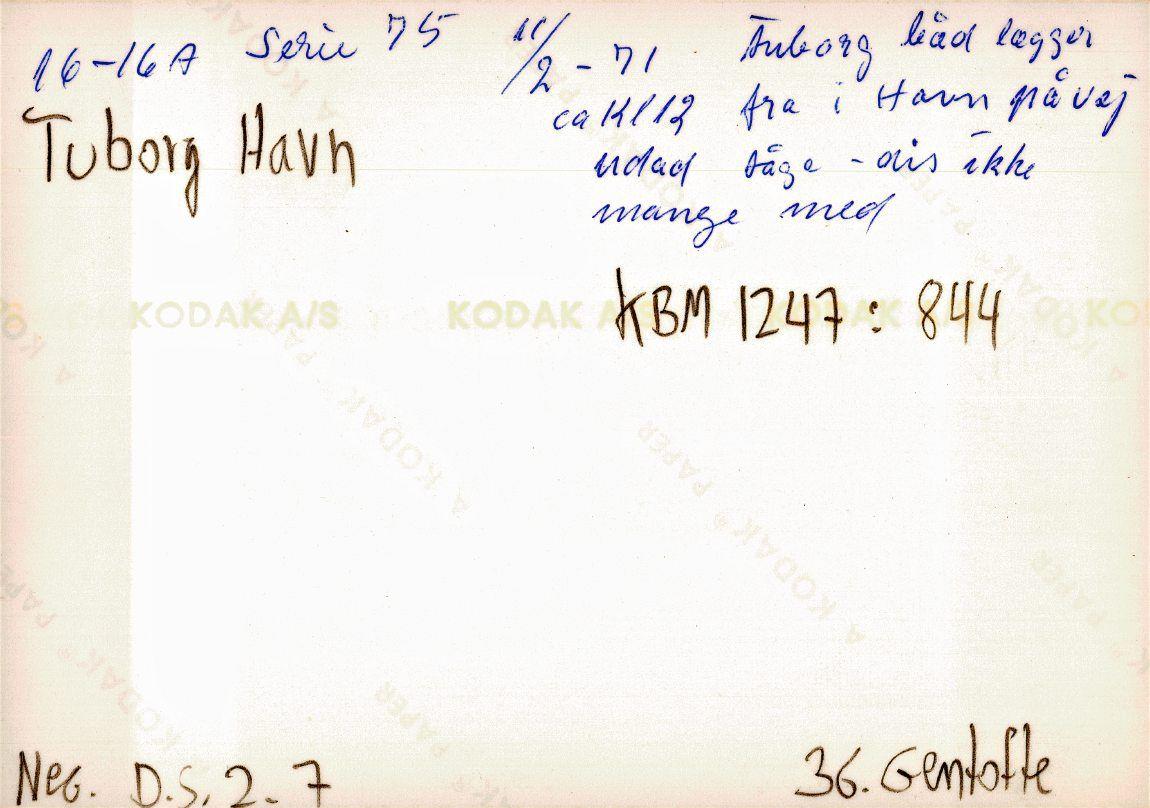 16-16A Serie 75 11/2-71 Tuborg båd lægger
ca Kl 12 fra i Havn på vej
Tuborg Havn
udad tåge - dis ikke
mange med
KBM 1247: 844
KODAK A/S KODAK A/S KO
A KODAK® PAPER
A KODAK® PAPER
Neg. D.S. 2-7
36. Gentofte